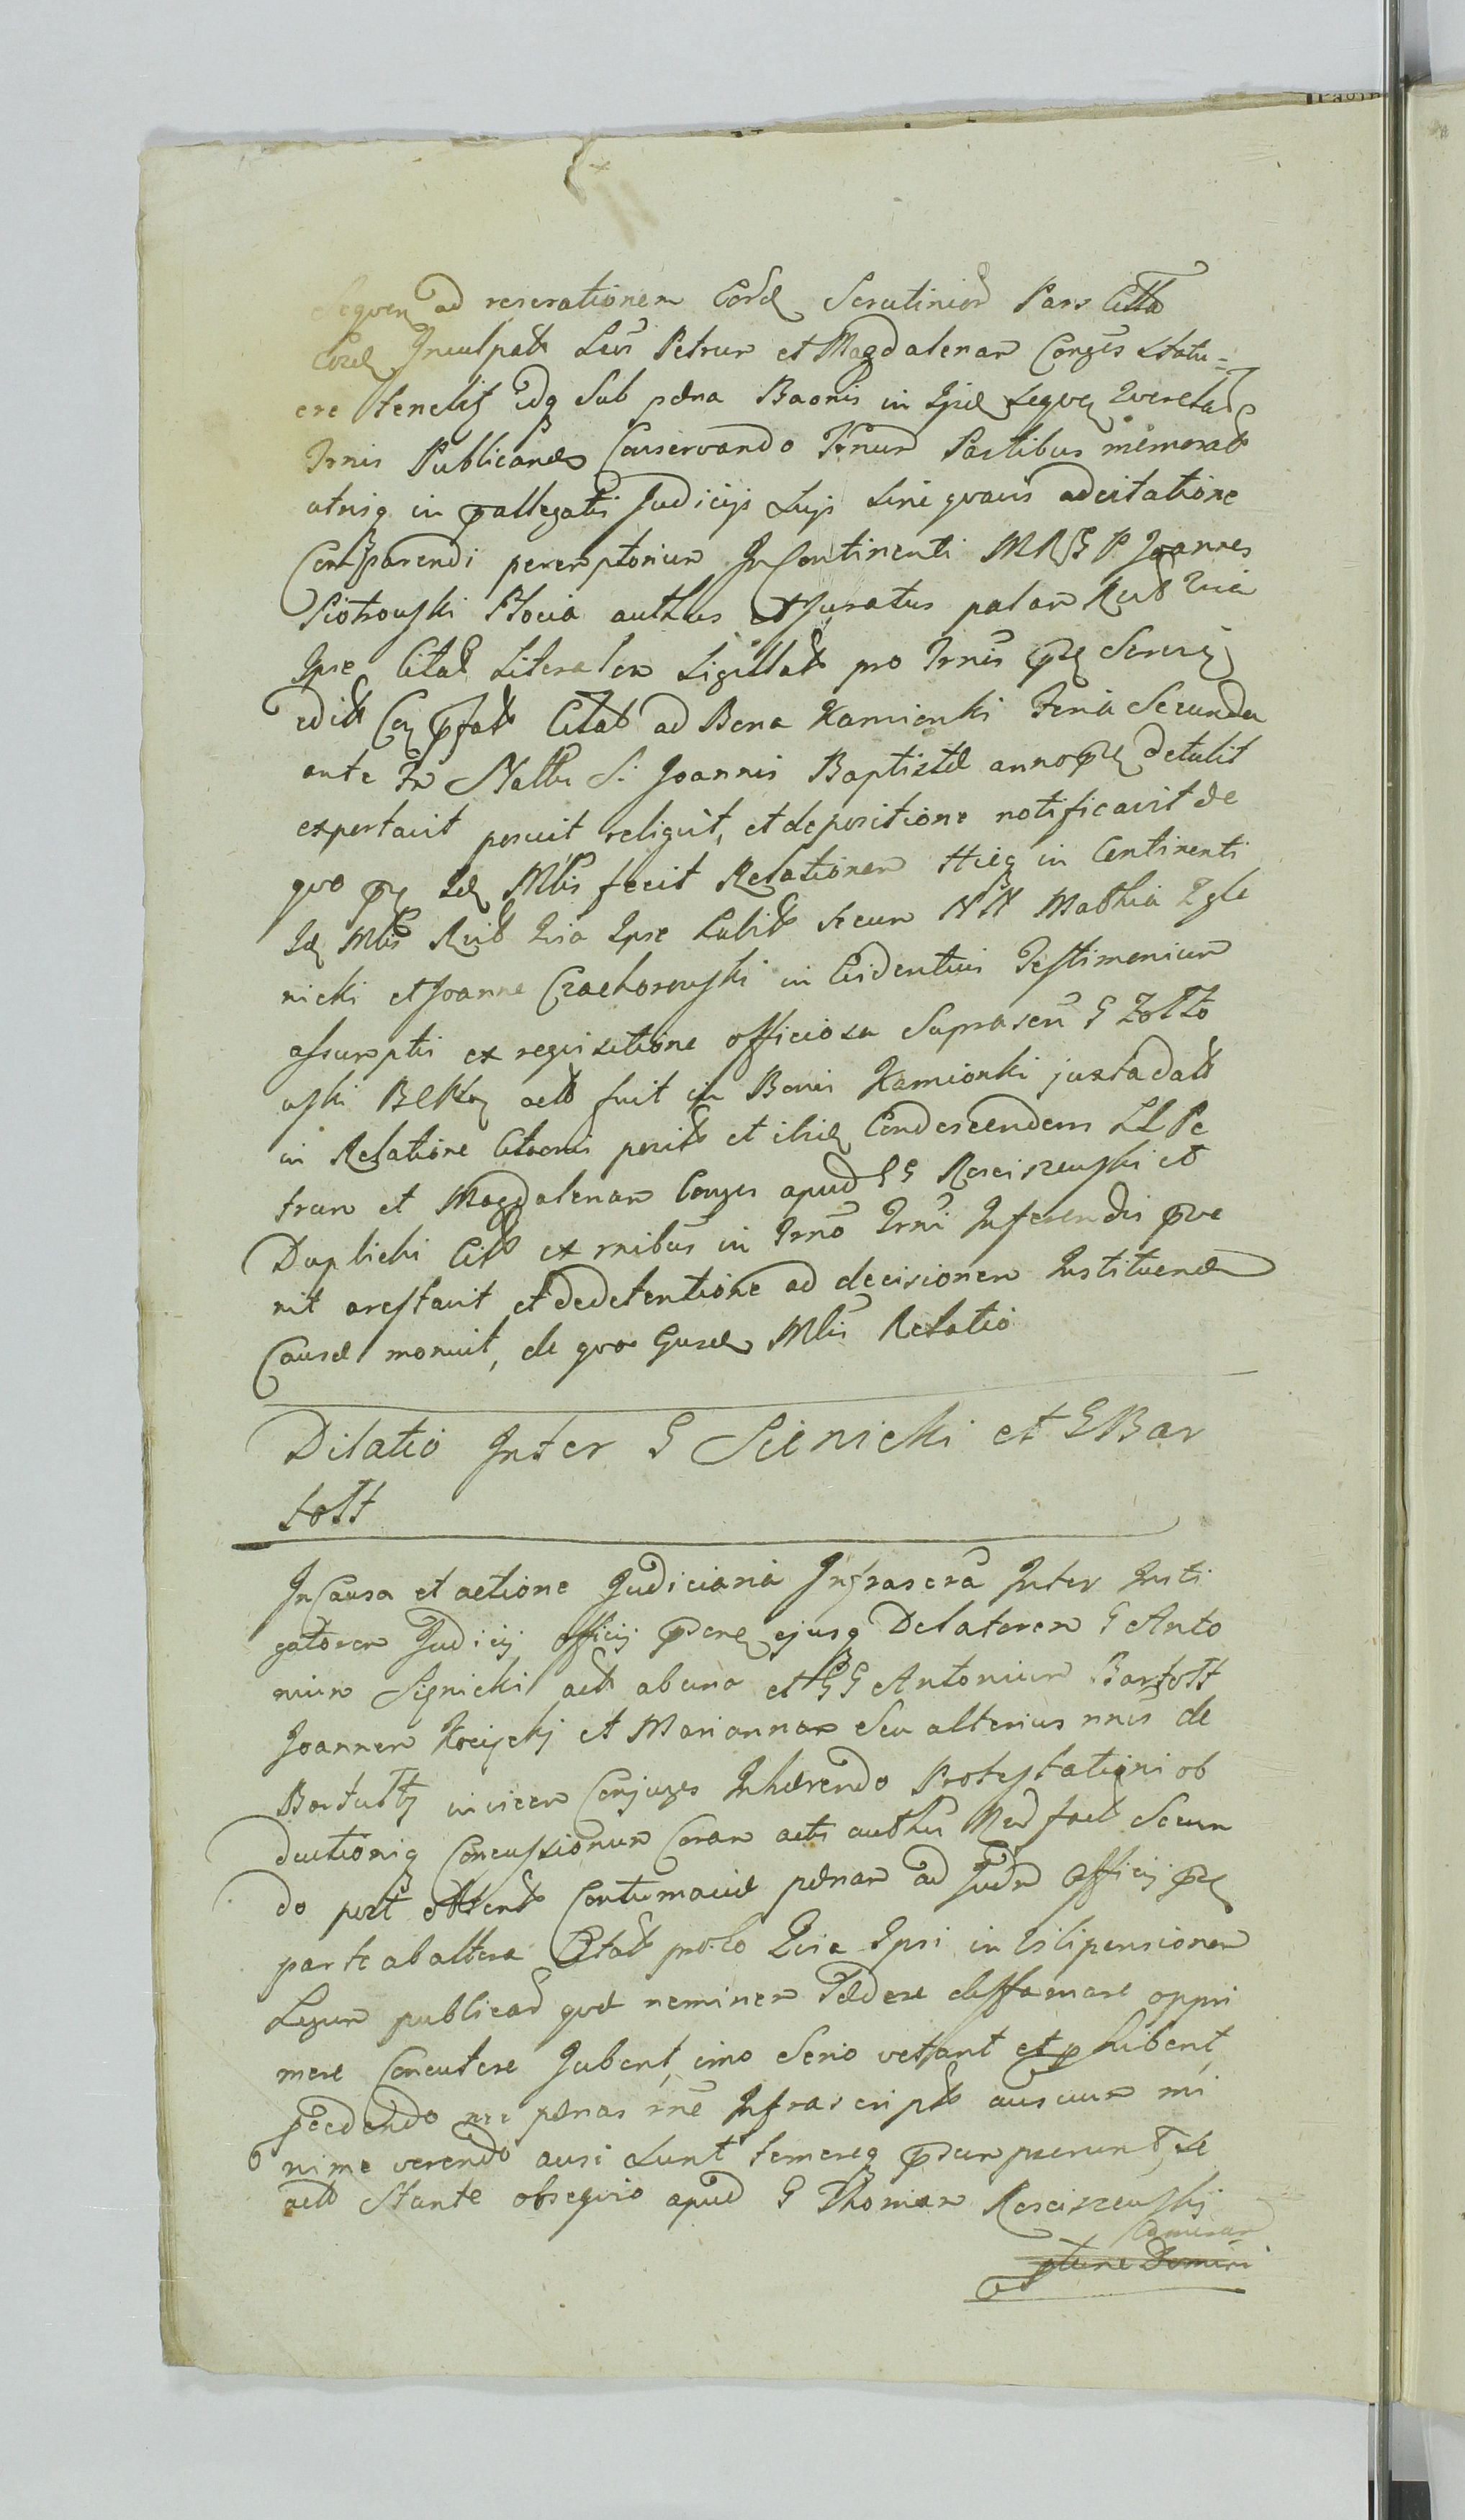 Seqven ad reserationem Eord Scrutinior Pars Citta
Inculpat Suis Petrum et Magdalenam Conges statu-
ere tenebit idq sub pæna Baonis in Ipse seqven
Trnis Publicand Conservando Trnum Partibus memorat
utrisq in pallegatis Judicijs suis sine qvavis adcitatione
Comparendi peremptorium In Continenti MRG P Joannes
Piotrowski Plocia authus et Juratus palam Rect Quia
Ipse Citat Literalem Sigillat pro Trnis
edit Citat ad Bona Kamionki Feria Secunda
ante Fm Nattis S. Joannis Baptistæ anno detulit
exportavit posuit reliqvit, et depositione notificavit de
qvo Mlis fecit Relationem Hicq in Continenti
Mlis Quia Ipse habit secum NN Mathia Zgle
nicki et Joanne Czachorowski in Evidentius Testimonium
assumptis ex reqvisitione officiosa Suprascri G Zołto
wski act fuit in Bonis Kamionki juxta dat
in Relatione Citaonis posit et ibid Condescendens LL Pe
trum et Magdalenam Conges apud GG Rosciszewski et
Duplicki Cit ex rnibus in Trno Trni Inferendis pve
nit arestavit et de detentione ad decisionem Instituend
Causæ monuit, de qvo Gusd Mlis Relatio
Dilatio Inter G Sienicki et G Bar
tołt
In Causa et actione Judiciaria Infrascra Inter Insti
gatorem Judicij officij ejusq Delatorem G Anto
nium Sienicki act ab una et GG Antonium Bartołt
Joannem et Mariannam seu alterius nnis de
Bartołty invicem Conjuges Inhærendo Protestationi ob
ductioniq Concussionum Coram actis authis fact Secun
do post obtent Contumaciæ pænam ad Judm Officij
parte ab altera Citat pro eo Quia Ipsi in vilipensionem
Legum publicar qvæ neminem lædere deffamare oppri
mere Concutere Jubent, imo serio vetant et phibent,
pænas Infrascript ausuum mi
nime verendo ausi sunt temereq psumpserunt, se
act Stante obseqvio apud G Thomam Rosciszewski